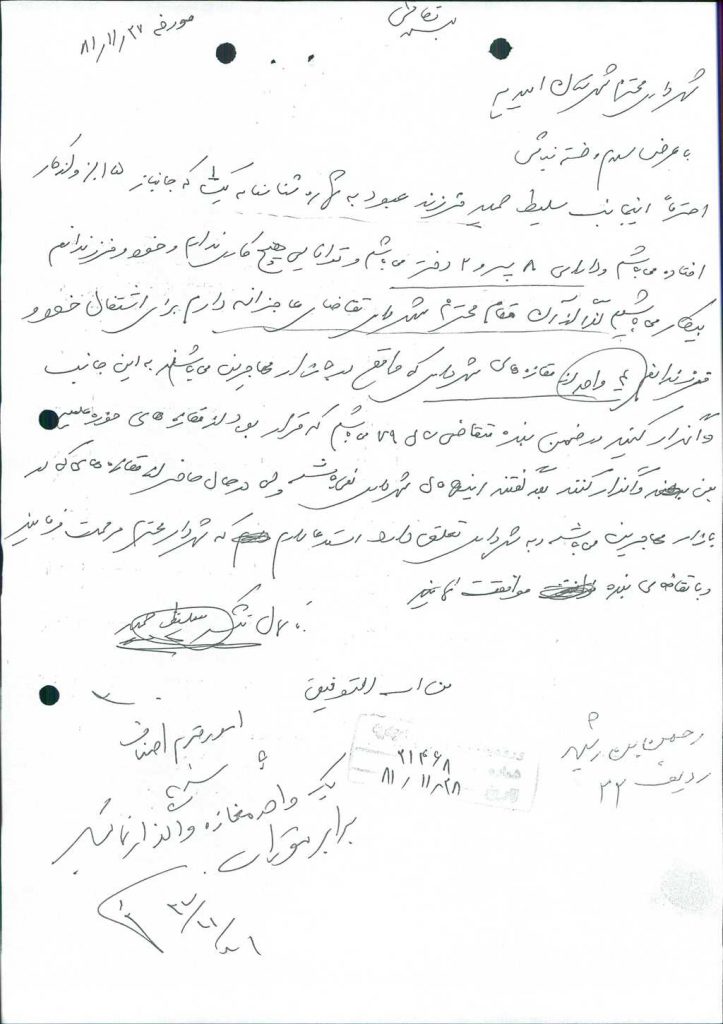 بسمه تعالی
مورخه ۸۱/۱۱/۲۷
شهرداری محترم شهرستان امیدیه
با عرض سلام و خسته نباشی
احتراماً اینجانب سلیط حمید فرزند عبود به شماره شناسنامه که جانباز ۱۵٪ و از کار
افتاده می‌باشم و دارای ۸ پسر و ۲ دختر می‌باشم و توانایی هیچ کاری ندارم و خود و فرزندانم
بیکار می‌باشیم لذا از آن مقام محترم شهرداری تقاضای عاجزانه دارم برای اشتغال خود و
فرزندانم واحد از مغازه‌های شهرداری که واقع در بازار مهاجرین می‌باشند به این جانب
واگذار کنید در ضمن بنده متقاضی سال ۷۹ می‌باشم که قرار بود از مغازه‌های حوزه علمیه
بمن واگذار کنند بعد گفتند اینها مال شهرداری نمی‌باشد ولی در حال حاضر از مغازه‌های که در
بازار مهاجرین می‌باشد و به شهرداری تعلق دارد استدعا دارم که شهردار محترم مرحمت فرمایند
و با تقاضای بنده موافقت نمایند
با کمال تشکر سلیط حمید
من الله التوفیق
امور محترم اصناف
یک واحد مغازه واگذار نمائید
برابر مقررات
۸۱/۱۱/۲۷
۲۱۴۶۸
۸۱/۱۱/۲۸
ردیف ۲۲